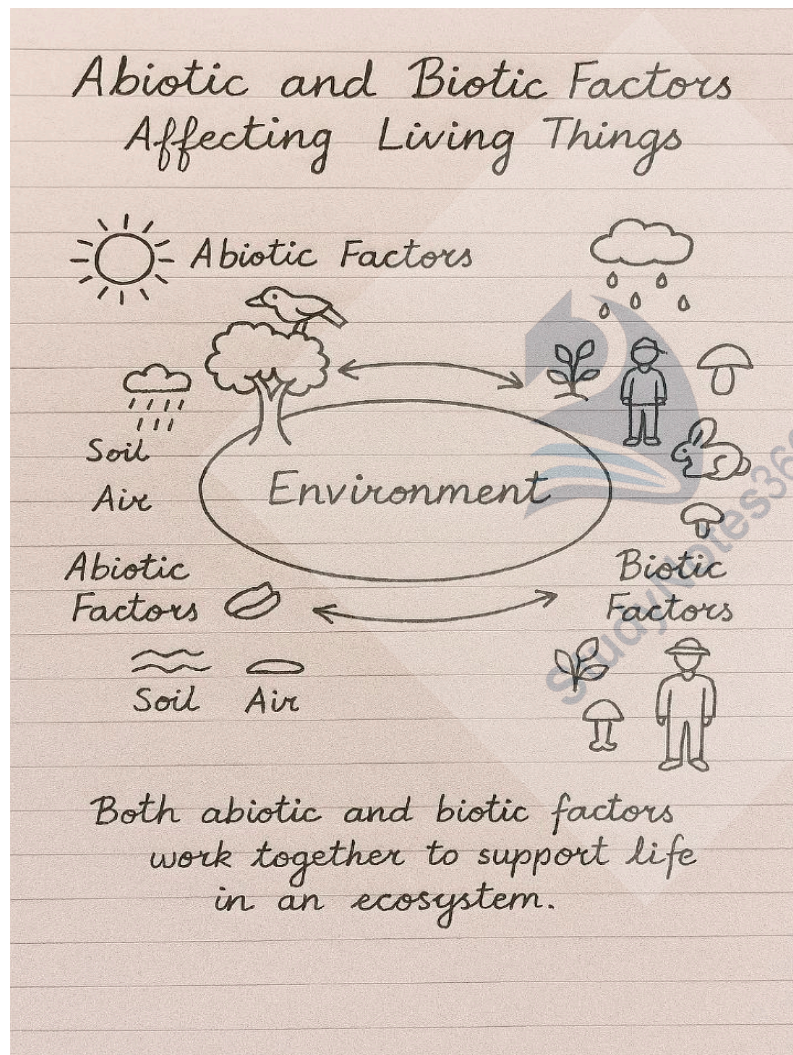 Abiotic and Biotic Factors
Affecting Living Things
Abiotic Factors
Soil
Air
Environment
Abiotic
Factors
Biotic
Factors
Soil
Air
Both abiotic and biotic factors
work together to support life
in an ecosystem.
StudyNotes36